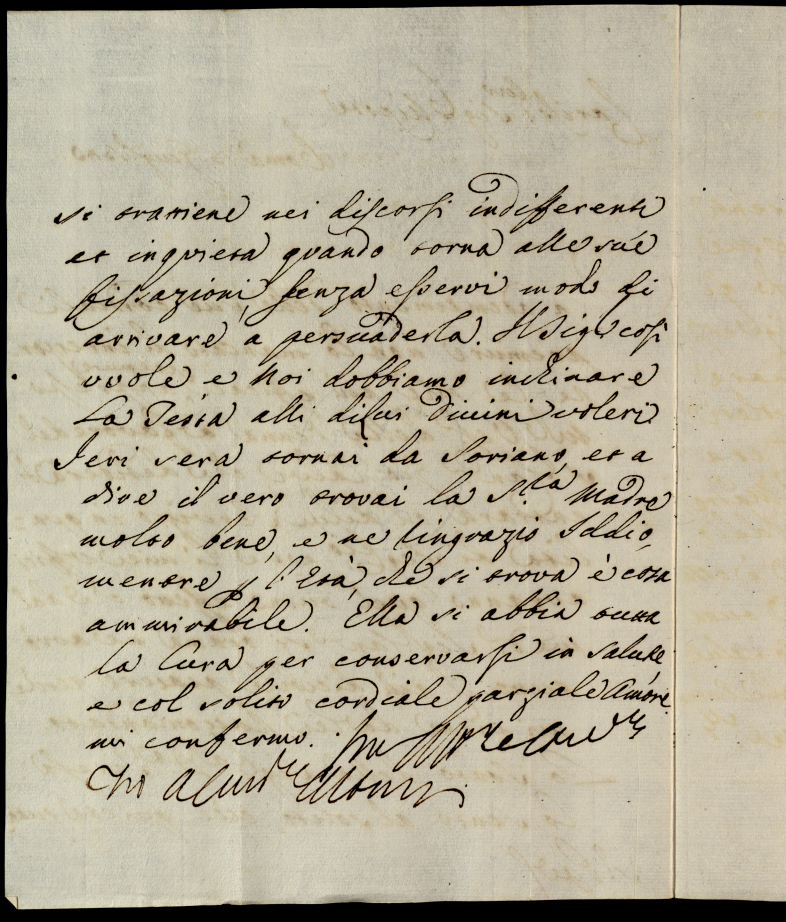 si trattiene nei discorsi indifferenti
et inquieta quando torna alle sue
fissazioni, senza esservi modo di
arrivare à persuaderla. Il Sig.re così
vuole e Noi dobbiamo inchinare
La Testa alli dilui Divini voleri
Jeri sera tornai da Soriano, et a
dire il vero trovai la S.ra Madre
molto bene, e ne ringrazio Iddio,
mentre p l'Età, che si trova è cosa
ammirabile. Ella si abbia tutta
la Cura per conservarsi in salute
e col solito cordiale parziale Amore
mi confermo.